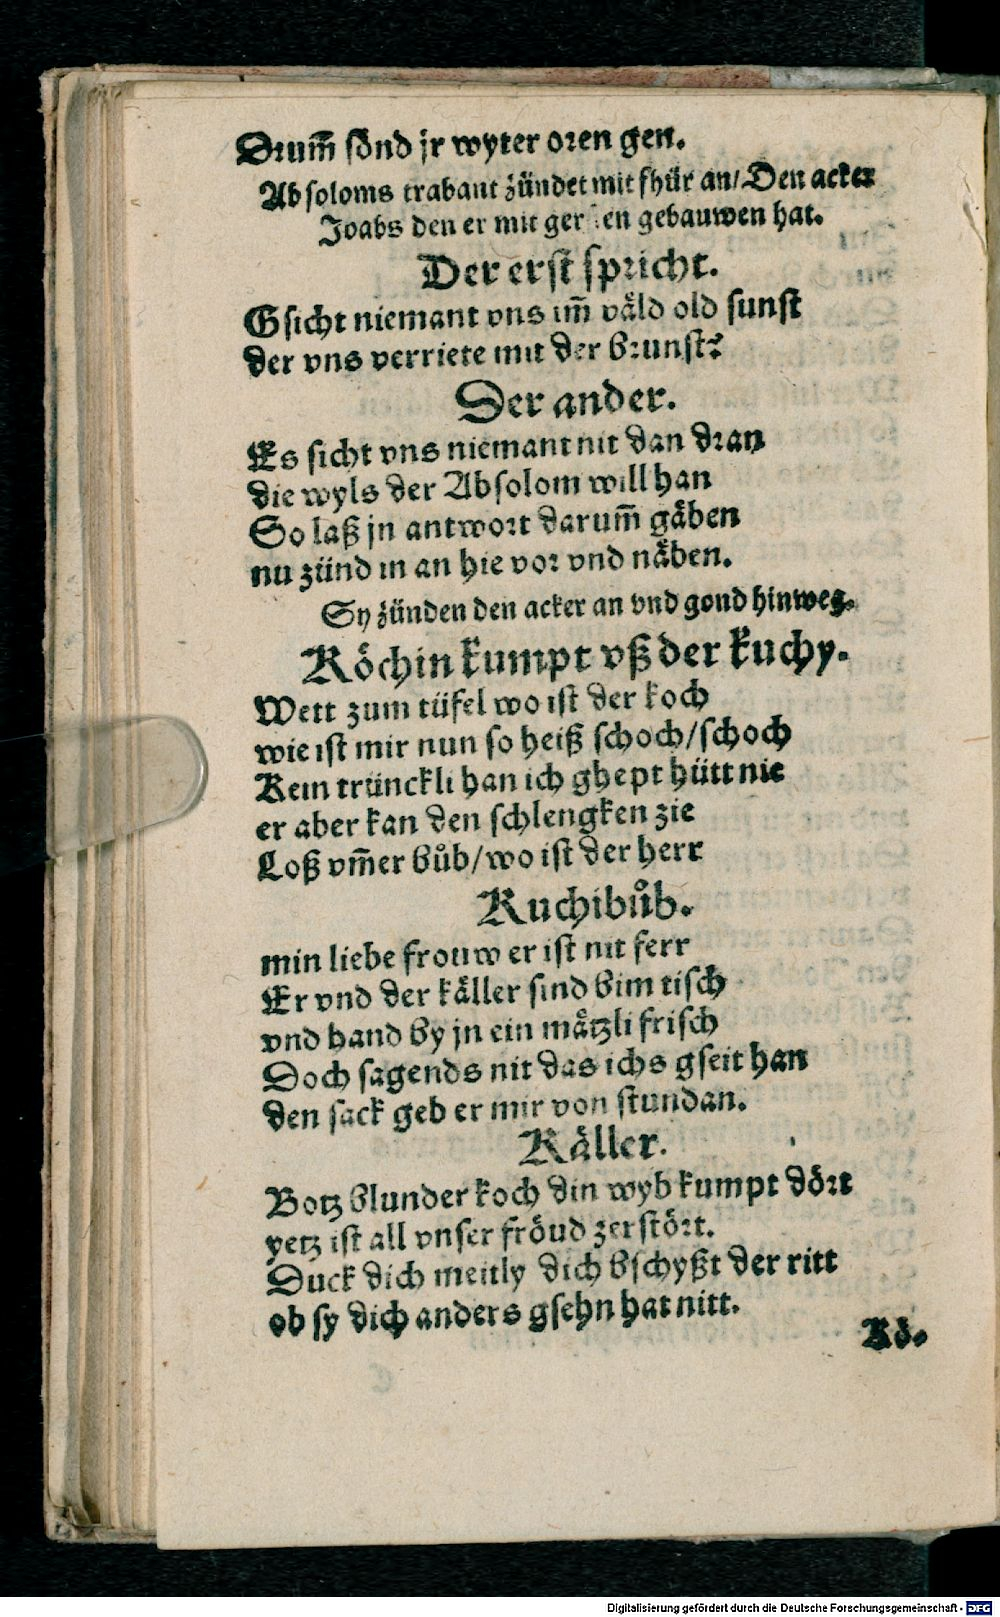 Drum̃ soͤnd jr wyter oren gen.
Absoloms trabant zündet mit fhür an/ Den acker
Joabs den er mit gersten gebauwen hat.
Der erst spricht.
Gsicht niemant vns im̃ vaͤld old sunst
der vns verriete mit der brunst?
Der ander.
Es sicht vns niemant nit dan dran
die wyls der Absolom will han
So laß jn antwort darum̃ gaͤben
nu zünd in an hie vor vnd naͤben.
Sy zünden den acker an vnd gond hinweg.
Koͤchin kumpt vß der kuchy.
Wett zum tüfel wo ist der koch
wie ist mir nun so heiß schoch/schoch
Kein trünckli han ich ghept hütt nie
er aber kan den schlengken zie
Loß vm̃er buͦb/wo ist der herr
Kuchibuͦb.
min liebe frouw er ist nit ferr
Er vnd der kaͤller sind bim tisch
vnd hand by jn ein maͤtzli frisch
Doch sagends nit das ichs gseit han
den sack geb er mir von stundan.
Kaͤller.
Botz blunder koch din wyb kumpt doͤrt
yetz ist all vnser froͤud zerstoͤrt.
Duck dich meitly dich bschyßt der ritt
ob sy dich anders gsehn hat nitt.
Koͤ.
Digitalisierung gefördert durch die Deutsche Forschungsgemeinschaft - DFG